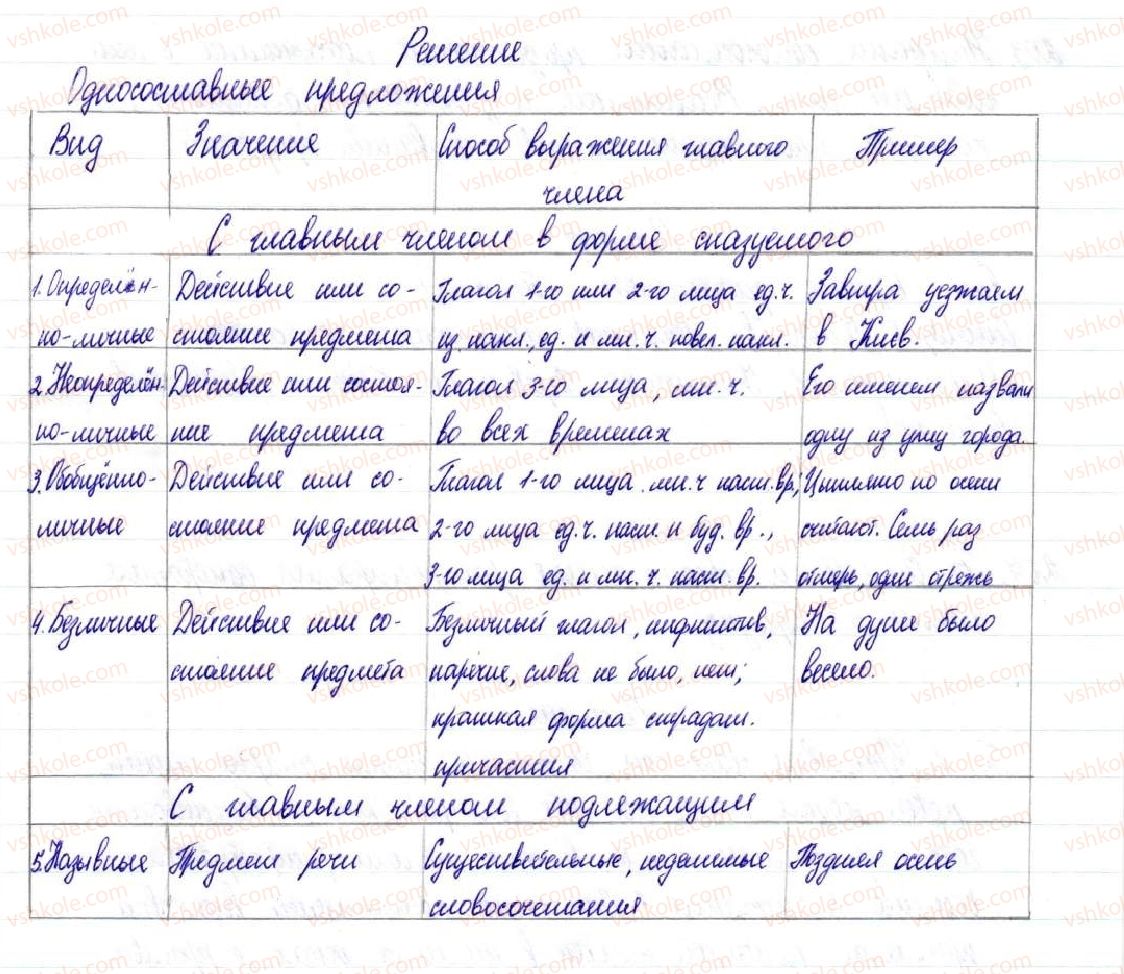 Решение
Односоставные предложения
Вид Значение Способ выражения главного Пример
члена
С главным членом в форме сказуемого
1. Определён- Действие или со- Глагол 1-го или 2-го лица ед.ч. Завтра уезжаем
но-личные стояние предмета из накл., ед. и мн. ч. повел. накл. в Киев.
2. Неопределён- Действие или состоя- Глагол 3-го лица, мн. ч. Его именем назвали
но-личные ние предмета во всех временах одну из улиц города.
3. Обобщённо- Действие или со- Глагол 1-го лица мн. ч наст. вр., Цыплят по осени
личные стояние предмета 2-го лица ед. ч. наст. и буд. вр., считают. Семь раз
3-го лица ед. и мн. ч. наст. вр. отмерь, один отрежь
4. Безличные Действие или со- Безличный глагол, инфинитив, На душе было
стояние предмета наречие, слова не было, нет; весело.
краткая форма страдат.
причастия
С главным членом подлежащим
5. Назывные Предмет речи Существительные, неделимые Поздняя осень
словосочетания